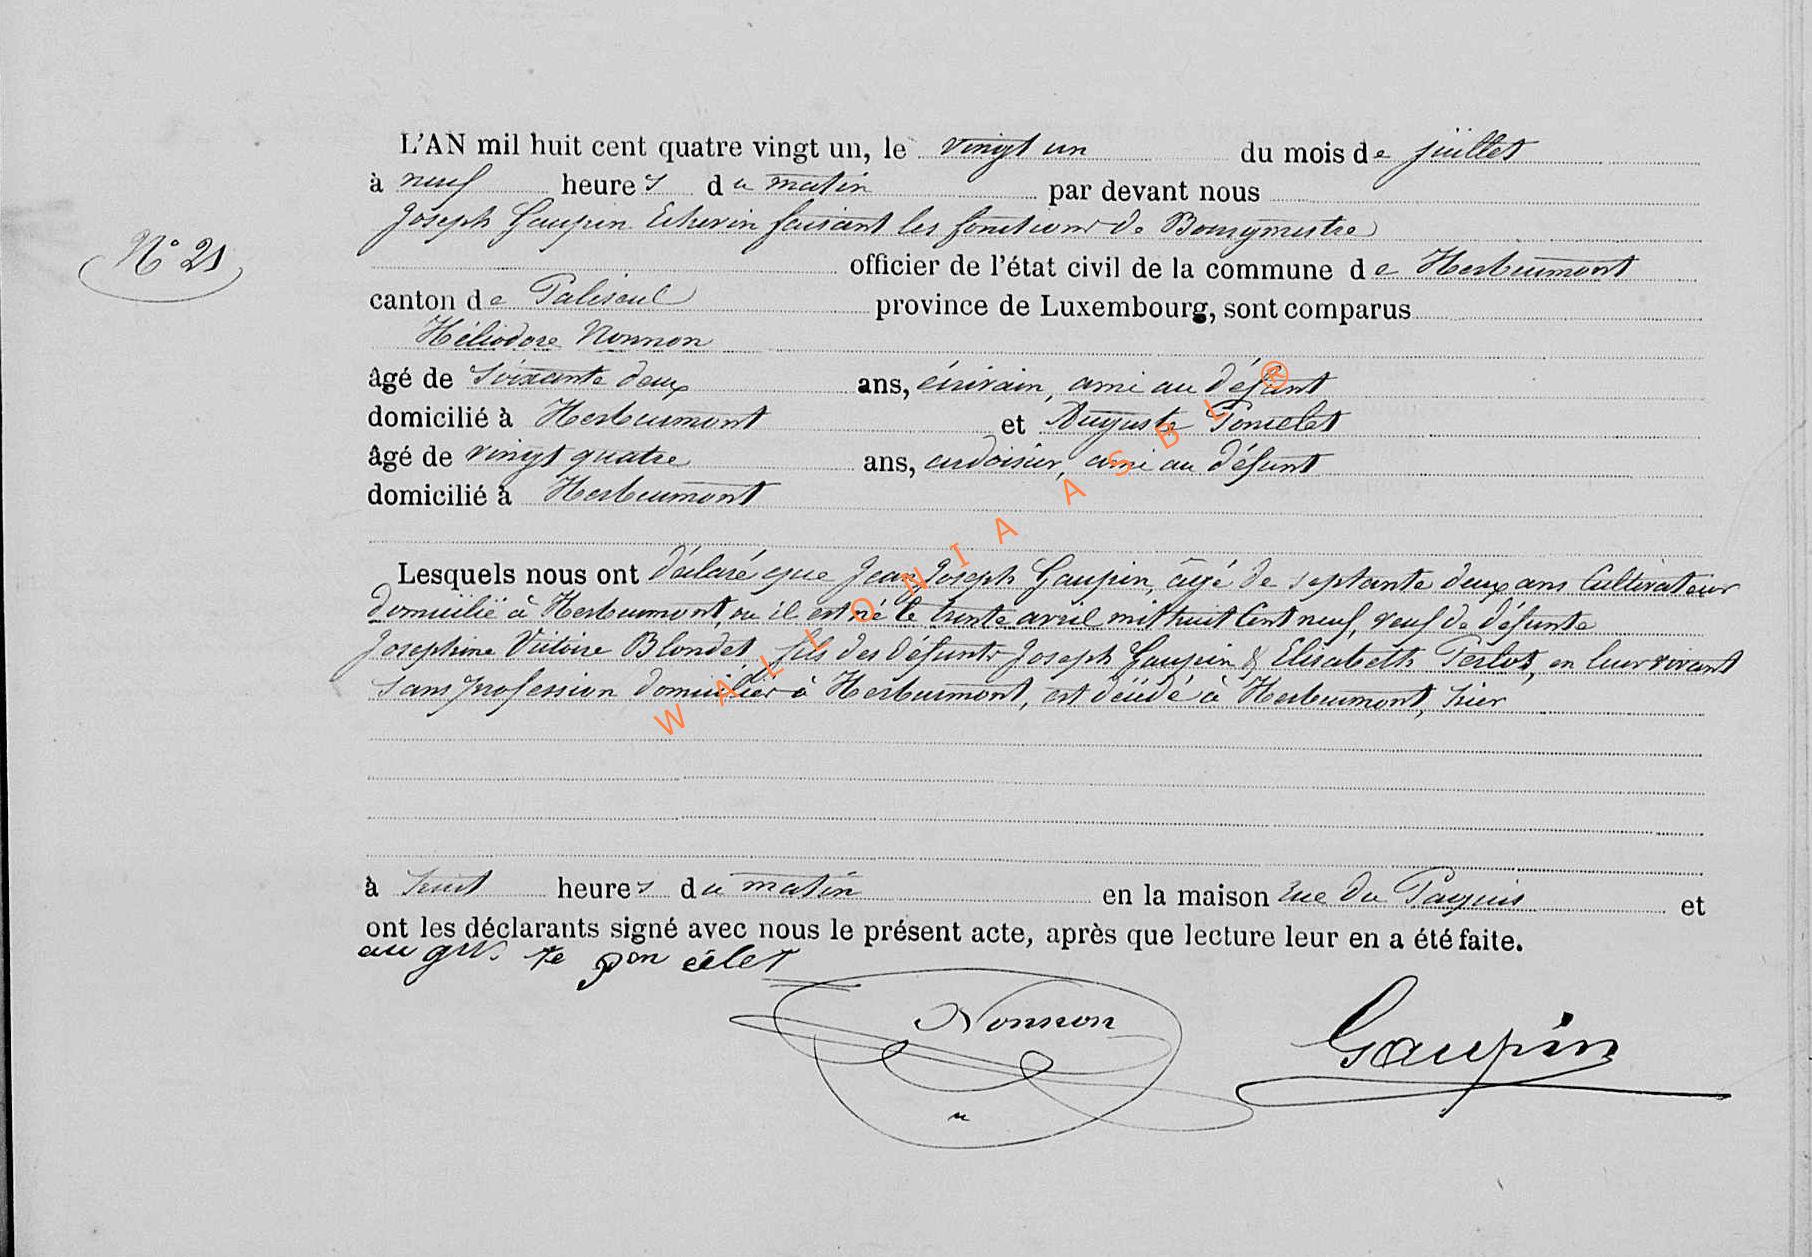 L'AN mil huit cent quatre vingt un, le vingt un du mois de juillet
à neuf heures du matin par devant nous
Joseph Gaupin Echevin faisant les fonctions de Bourgmestre
N° 21
officier de l'état civil de la commune de Herbeumont
canton de Paliseul province de Luxembourg, sont comparus
Héliodore Nonnon
âgé de soixante deux ans, écrivain, ami au défunt
domicilié à Herbeumont et Auguste Poncelet
âgé de vingt quatre ans, ardoisier, ami au défunt
domicilié à Herbeumont
Lesquels nous ont déclaré que Jean Joseph Gaupin, âgé de septante deux ans Cultivateur
domicilié à Herbeumont, ou il est né le trente avril mil huit Cent neuf, veuf de défunte
Josephine Victoire Blondet, fils des défunts Joseph Gaupin & Elisabeth Perlot, en leur vivant
sans profession domiciliés à Herbeumont, est décédé à Herbeumont, hier
à huit heures du matin en la maison rue du Paquis et
ont les déclarants signé avec nous le présent acte, après que lecture leur en a été faite.
te pon célet
Nonnon
Gaupin
WALLONIA ASBL ®